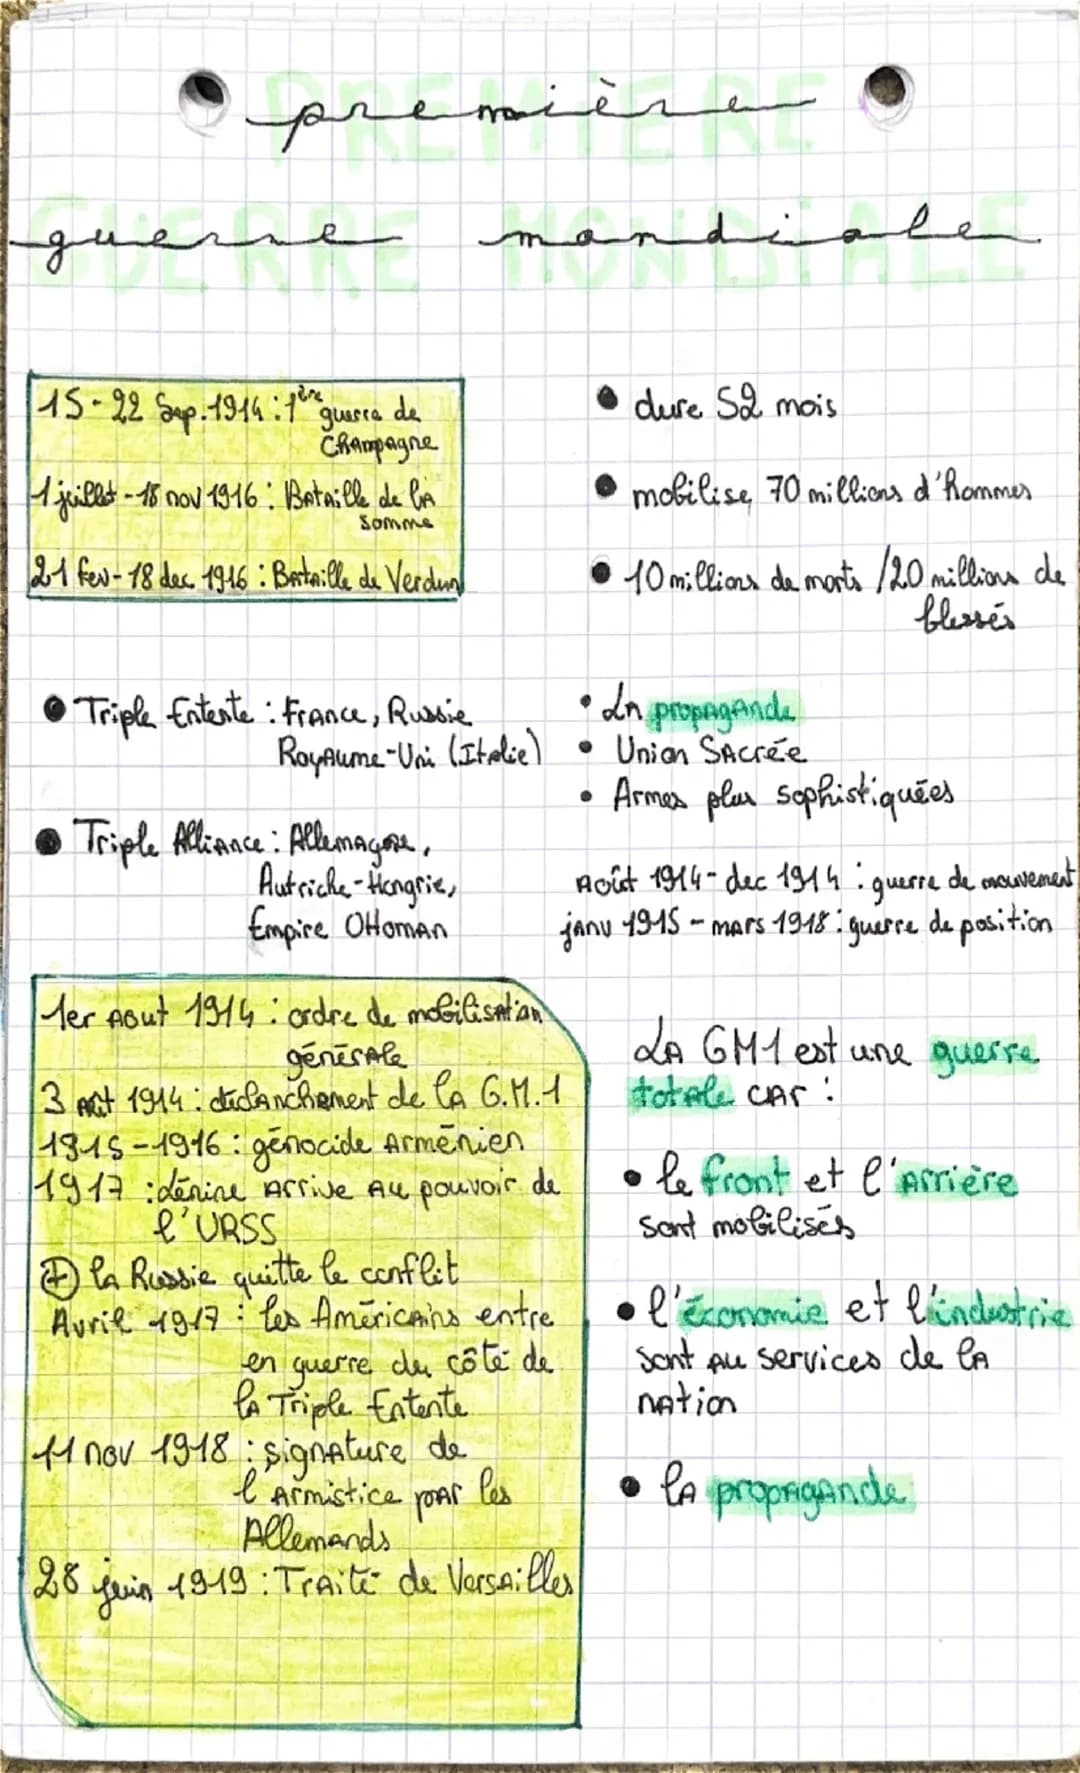 PREMIERE
première
GUERRE MONDIALE
guerre mondiale
15-22 Sep. 1914 : 1ère guerre de
Champagne
1 juillet - 18 nov 1916 : Bataille de la
Somme
21 fev - 18 dec 1916 : Bataille de Verdun
• dure 52 mois
• mobilise 70 millions d'hommes
• 10 millions de morts / 20 millions de
blessés
• Triple Entente : France, Russie
Royaume-Uni (Italie)
• Triple Alliance : Allemagne,
Autriche-Hongrie,
Empire Ottoman
• La propagande
• Union Sacrée
• Armes plus sophistiquées
Août 1914 - dec 1914 : guerre de mouvement
janv 1915 - mars 1918 : guerre de position
1er Aout 1914 : ordre de mobilisation
générale
3 Août 1914 : déclanchement de la G.M.1
1915-1916 : génocide Arménien
1917 : Lénine arrive au pouvoir de
l'URSS
+ la Russie quitte le conflit
Avril 1917 : les Américains entre
en guerre du côté de
la Triple Entente
11 nov 1918 : signature de
l'armistice par les
Allemands
28 juin 1919 : Traité de Versailles
La GM1 est une guerre
totale car :
• le front et l'arrière
sont mobilisés
• l'économie et l'industrie
sont au services de la
nation
• la propagande